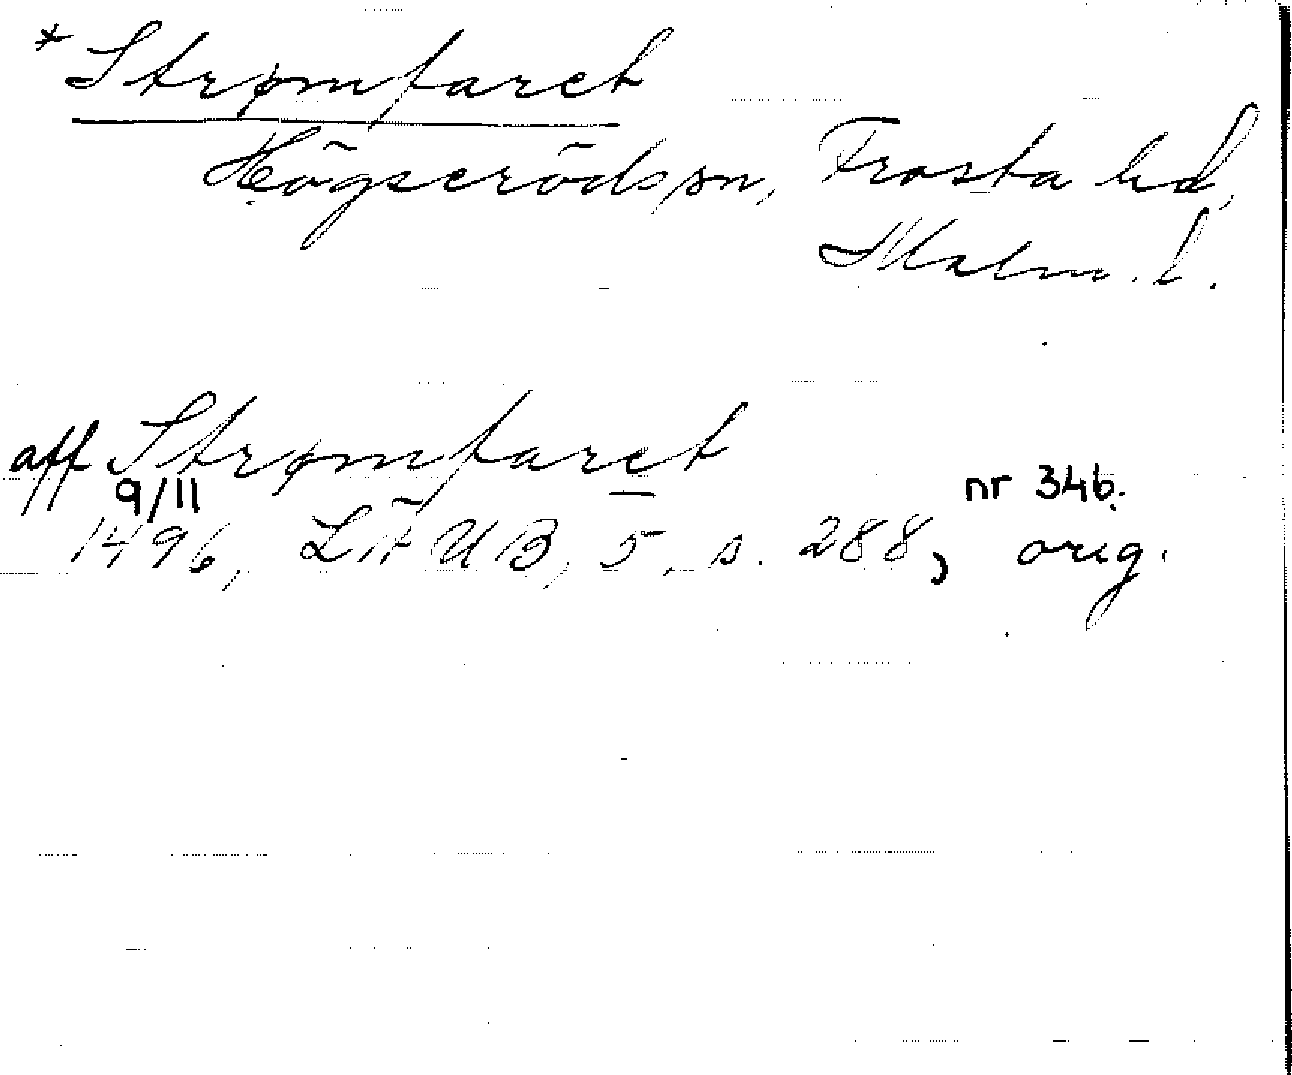 * Strømfaret
Högseröds sn, Frosta hd,
Malm. l.
aff Strømfaret
9/11 nr 346.
1496, LÄUB, 5, s. 288, orig.